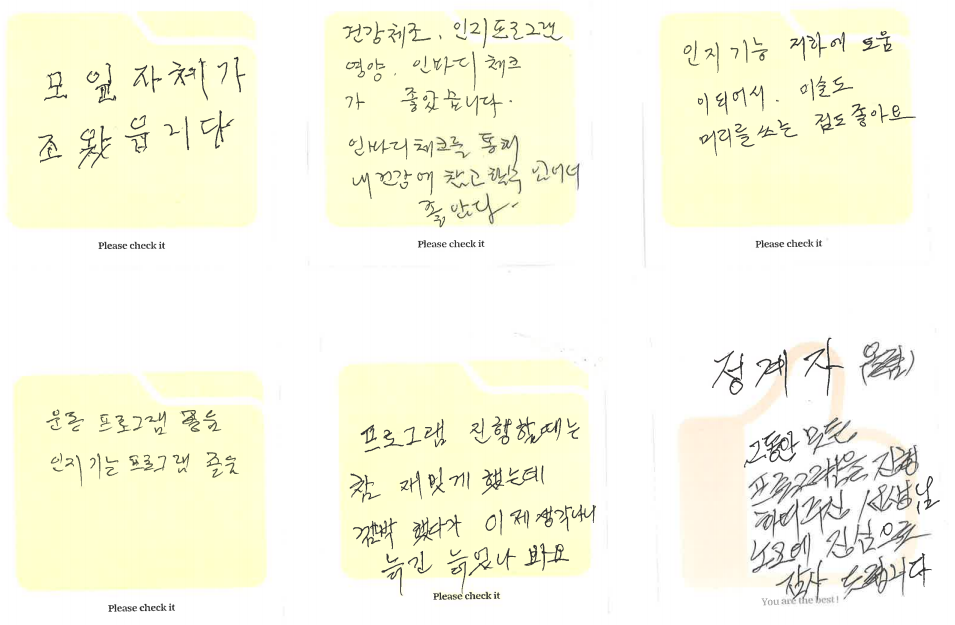 모임자체가
조왔읍니다
Please check it
건강체조, 인지프로그램
영양, 인바디 체크
가 좋았습니다.
인바디체크를 통해
내건강에 참고
좋았다.
Please check it
인지기능 저하에 도움
이되어서. 미술도
머리를 쓰는 점도 좋아요
Please check it
운동 프로그램 좋음
인지기능 프로그램 좋음
Please check it
프로그램 진행할때는
참 재밋게 했는데
깜박 했다가 이제 생각나니
늙긴 늙었나 봐요
Please check it
정계자
그동안 모든
프로그램을 진행
하여주신 선생님
노고에 진심으로
감사 드립니다
You are the best!